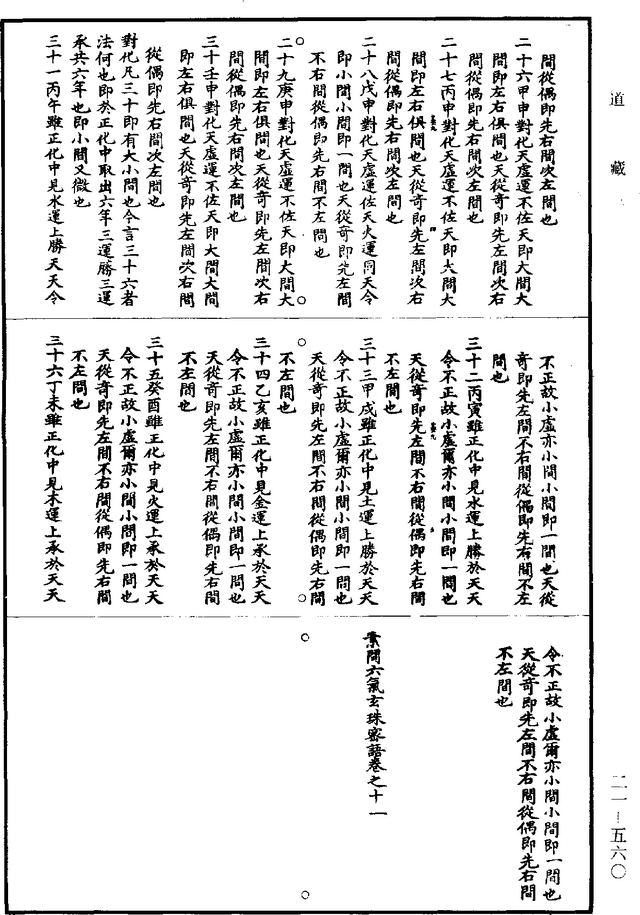 道藏
間從偶即先右間次左間也
二十六甲申對化天虛運不佐天即大間大
間即左右俱間也天從奇即先左間次右
間從偶即先右間次左間也
二十七丙申對化天虛運不佐天即大間大
間即左右俱間也天從奇即先左間次右
間從偶即先右間次左間也
二十八戊申對化天虛運佐天火運同天令
即小間小間即一間也天從奇即先左間
不右間從偶即先右間不左間也
二十九庚申對化天虛運不佐天即大間大
間即左右俱間也天從奇即先左間次右
間從偶即先右間次左間也
三十壬申對化天虛運不佐天即大間大間
即左右俱間也天從奇即先左間次右間
從偶即先右間次左間也
對化凡三十即有大小間也今言三十六者
法何也即於正化中取出六年三運勝三運
承共六年也即小間又微也
三十一丙午雖正化中見水運上勝天天令
不正故小虛亦小間小間即一間也天從
奇即先左間不右間從偶即先右間不左
間也
三十二丙寅雖正化中見水運上勝於天天
令不正故小虛爾亦小間小間即一間也
天從奇即先左間不右間從偶即先右間
不左間也
三十三甲戌雖正化中見土運上勝於天天
令不正故小虛爾亦小間小間即一間也
天從奇即先左間不右間從偶即先右間
不左間也
三十四乙亥雖正化中見金運上承於天天
令不正故小虛爾亦小間小間即一間也
天從奇即先左間不右間從偶即先右間
不左間也
三十五癸酉雖正化中見火運上承於天天
令不正故小虛爾亦小間小間即一間也
天從奇即先左間不右間從偶即先右間
不左間也
三十六丁未雖正化中見木運上承於天天
令不正故小虛爾亦小間小間即一間也
天從奇即先左間不右間從偶即先右間
不左間也
素問六氣玄珠密語卷之十一
二一-五六〇